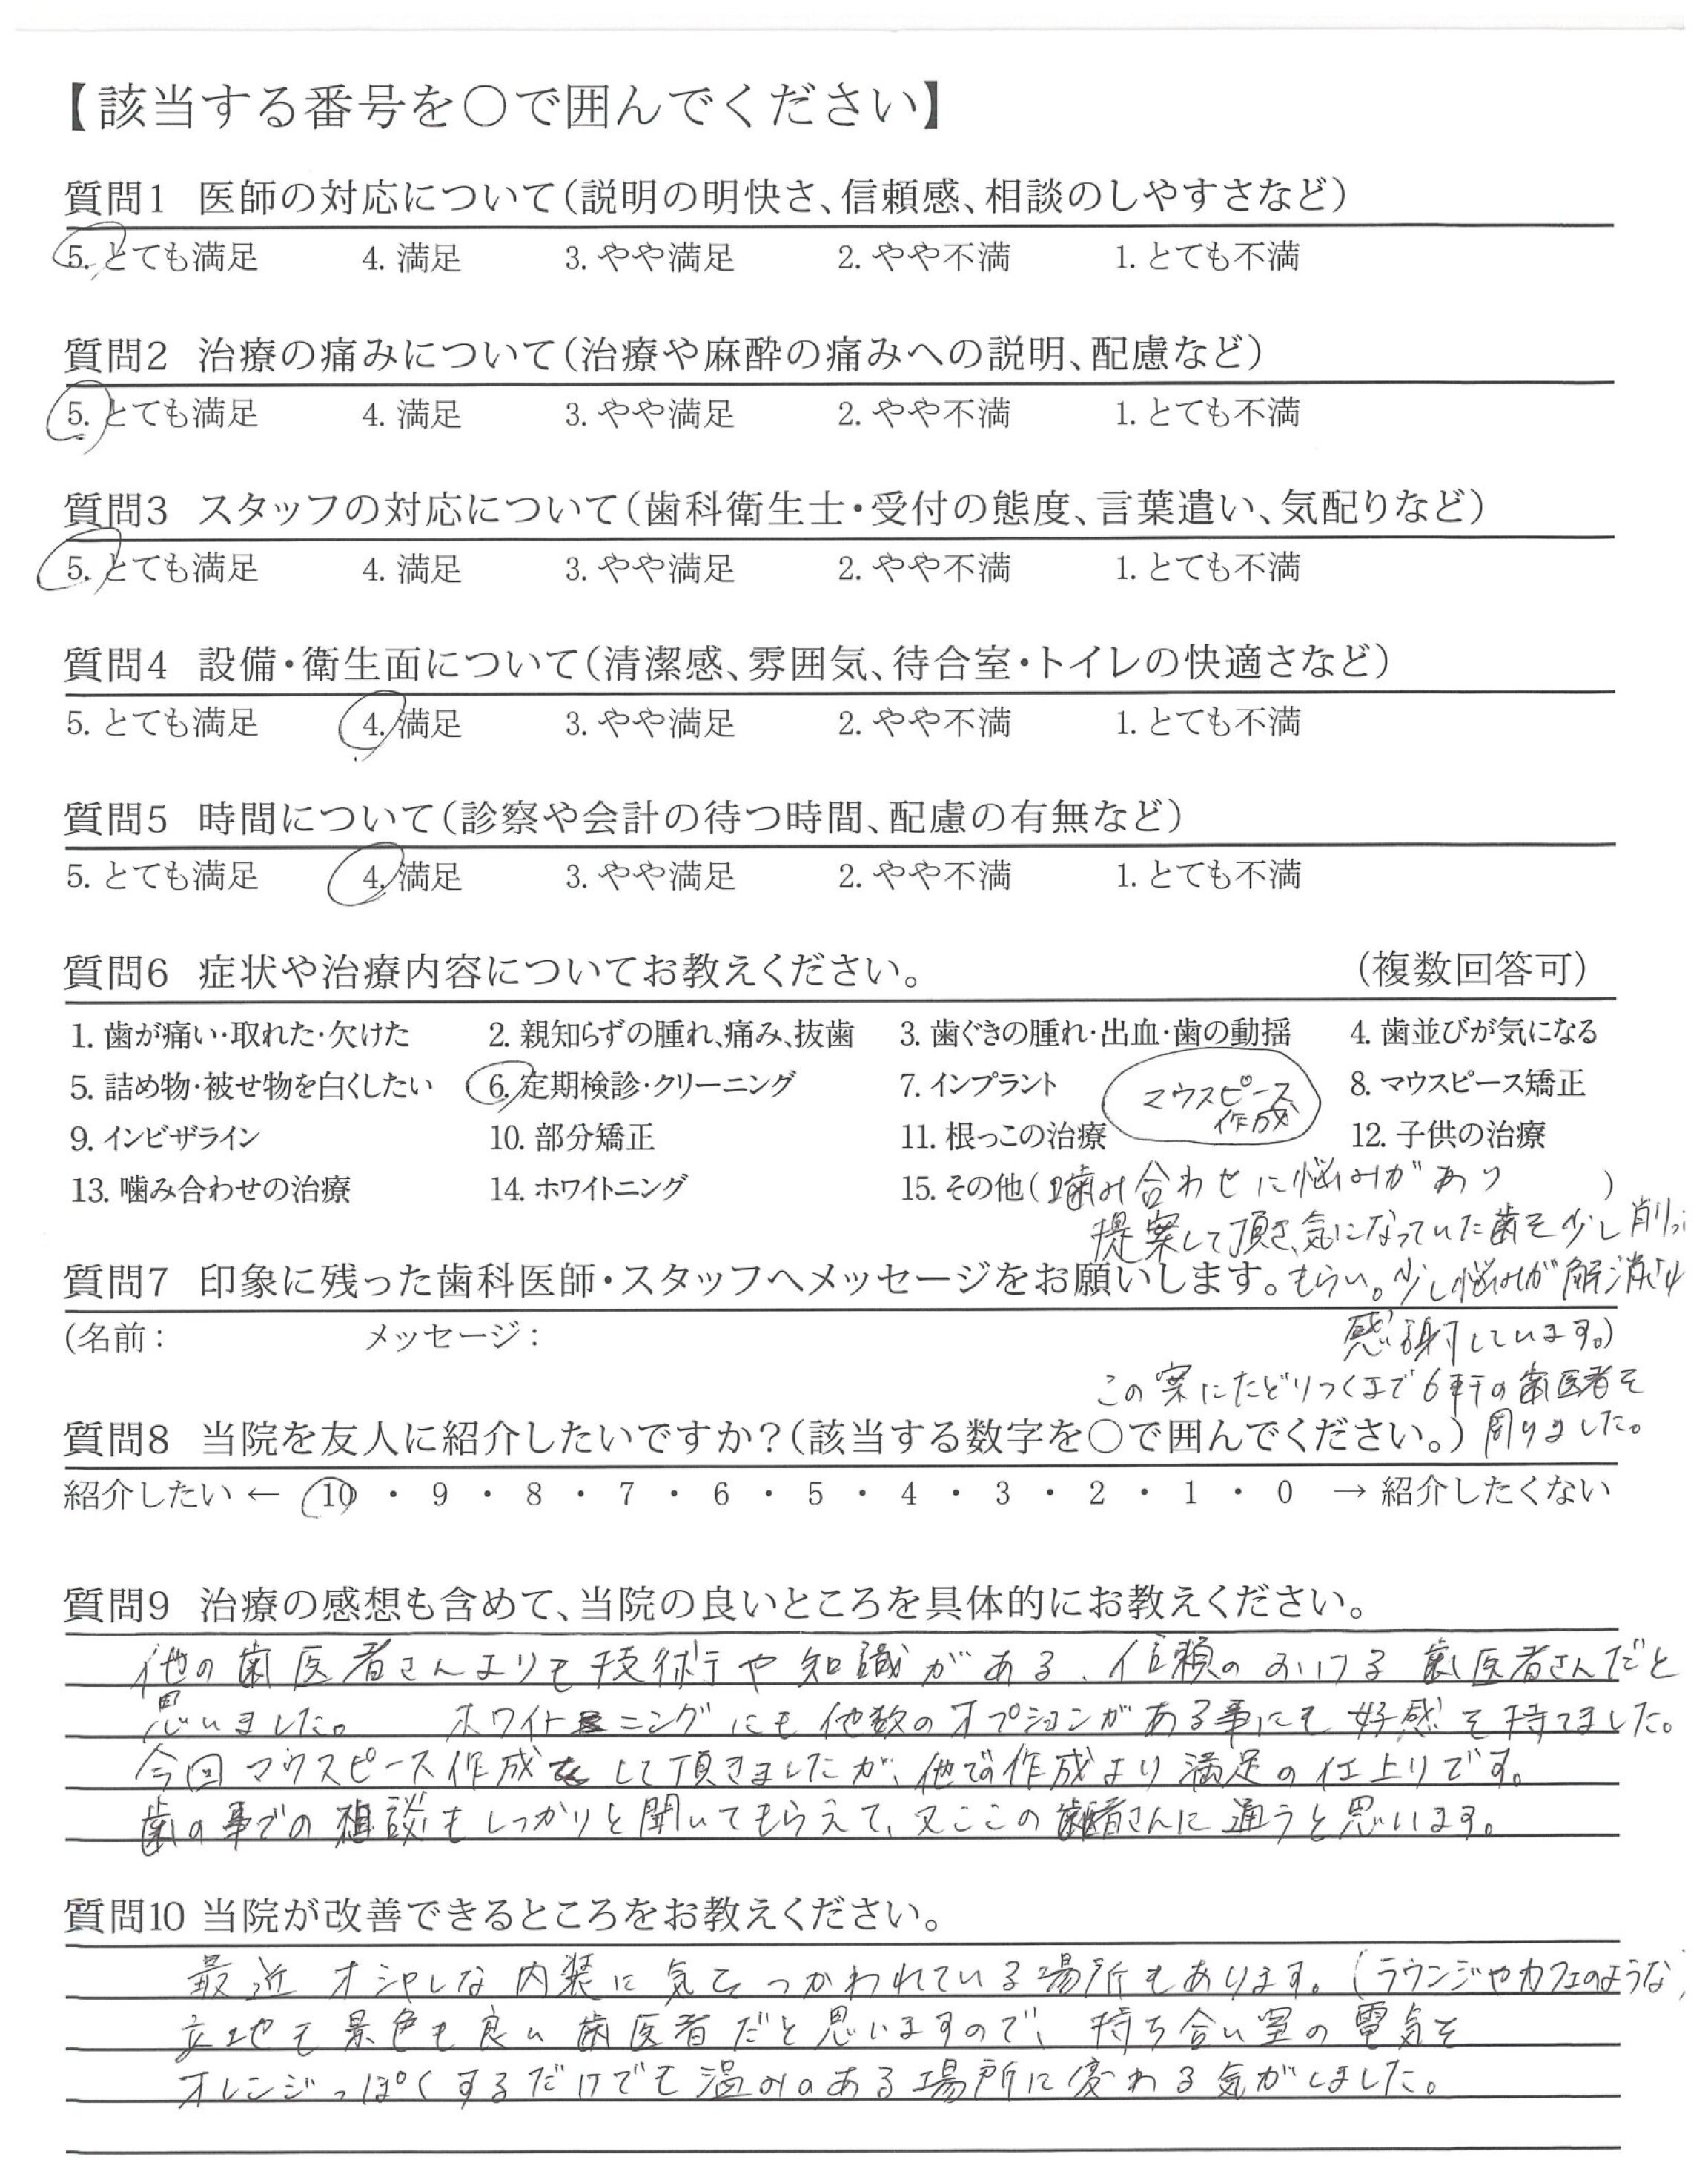 【該当する番号を〇で囲んでください】
質問1 医師の対応について(説明の明快さ、信頼感、相談のしやすさなど)
5. とても満足 4. 満足 3. やや満足 2. やや不満 1. とても不満
質問2 治療の痛みについて(治療や麻酔の痛みへの説明、配慮など)
5. とても満足 4. 満足 3. やや満足 2. やや不満 1. とても不満
質問3 スタッフの対応について(歯科衛生士・受付の態度、言葉遣い、気配りなど)
5. とても満足 4. 満足 3. やや満足 2. やや不満 1. とても不満
質問4 設備・衛生面について(清潔感、雰囲気、待合室・トイレの快適さなど)
5. とても満足 4. 満足 3. やや満足 2. やや不満 1. とても不満
質問5 時間について(診察や会計の待つ時間、配慮の有無など)
5. とても満足 4. 満足 3. やや満足 2. やや不満 1. とても不満
質問6 症状や治療内容についてお教えください。 (複数回答可)
1. 歯が痛い・取れた・欠けた 2. 親知らずの腫れ、痛み、抜歯 3. 歯ぐきの腫れ・出血・歯の動揺 4. 歯並びが気になる
5. 詰め物・被せ物を白くしたい 6. 定期検診・クリーニング 7. インプラント 8. マウスピース矯正
マウスピース
作成
9. インビザライン 10. 部分矯正 11. 根っこの治療 12. 子供の治療
13. 噛み合わせの治療 14. ホワイトニング 15. その他(噛み合わせに悩みがあり )
提案して頂き、気になっていた歯を少し削っ
質問7 印象に残った歯科医師・スタッフへメッセージをお願いします。もらい。少し悩みが解消され
(名前: メッセージ: 感謝しています。)
この案にたどりつくまで6軒の歯医者を
質問8 当院を友人に紹介したいですか?(該当する数字を〇で囲んでください。) 周りました。
紹介したい ← 10 ・ 9 ・ 8 ・ 7 ・ 6 ・ 5 ・ 4 ・ 3 ・ 2 ・ 1 ・ 0 → 紹介したくない
質問9 治療の感想も含めて、当院の良いところを具体的にお教えください。
他の歯医者さんよりも技術や知識がある、信頼のおける歯医者さんだと
思いました。 ホワイトニングにも他数のオプションがある事にも好感を持てました。
今回マウスピース作成をして頂きましたが、他での作成より満足の仕上りです。
歯の事での相談もしっかりと聞いてもらえて、又ここの歯医者さんに通うと思います。
質問10 当院が改善できるところをお教えください。
最近オシャレな内装に気をつかわれている場所もあります。(ラウンジやカフェのような)
立地も景色も良い歯医者だと思いますので、持ち合い室の電気を
オレンジっぽくするだけでも温みのある場所に変わる気がしました。